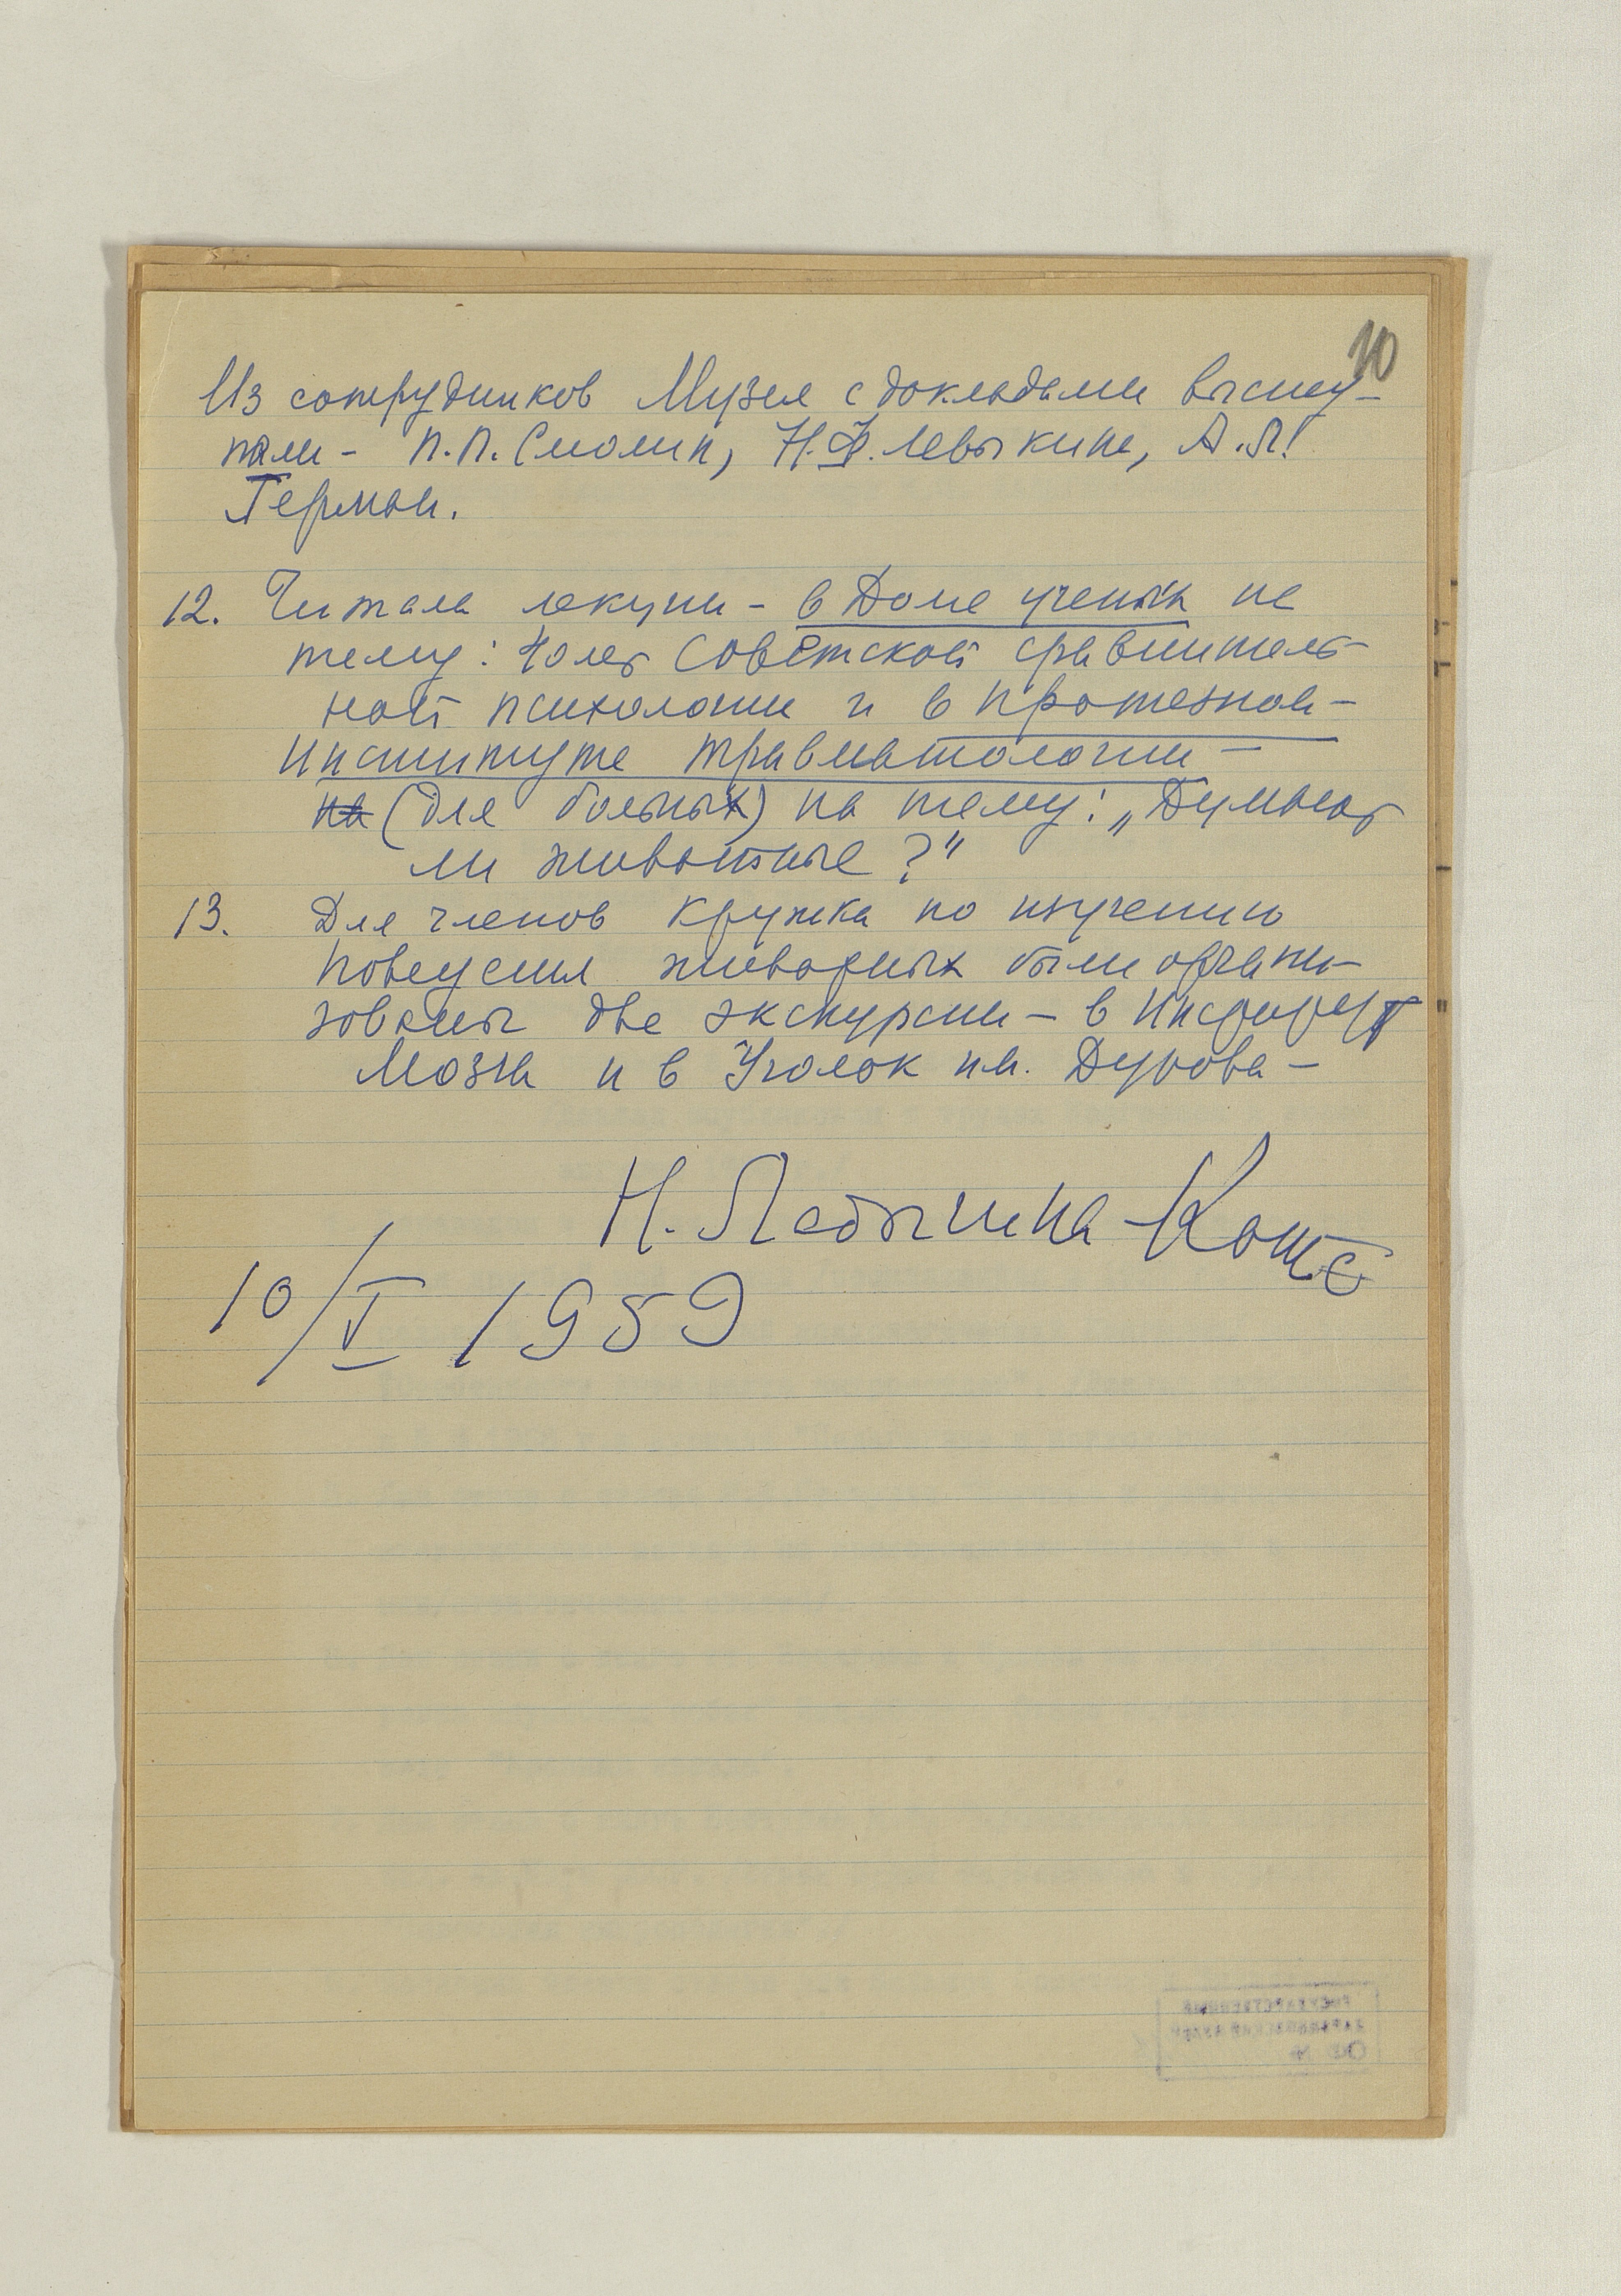 10
Из сотрудников Музея с докладами высту-
пали - П.П. Смолин, Н.Ф. Левыкина, А.Л.
Герман.
12. Читала лекции - в Доме ученых на
тему: 40 лет Советской сравнитель-
ной психологии и в Протезном -
Институте травматологии -
на (для больных) на тему: „Думают
ли животные?"
13. Для членов кружка по изучению
поведения животных были органи-
зованы две экскурсии - в Институт
Мозга и в Уголок им. Дурова -
Н. Ладыгина-Котс
10/I 1959